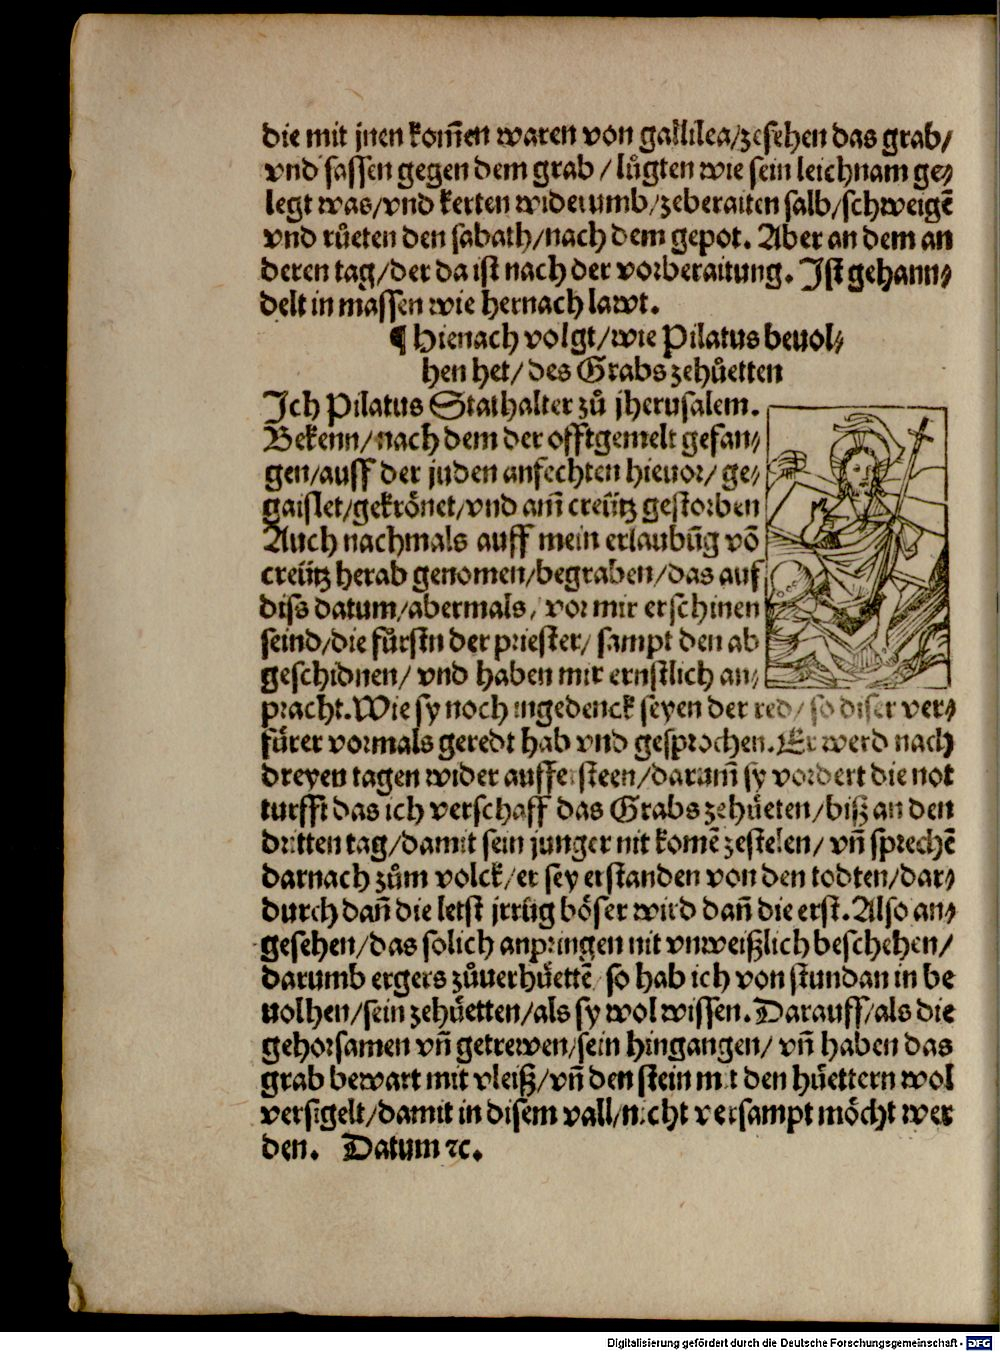 die mit jnen kom̄en waren von gallilea/zesehen das grab/
vnd sassen gegen dem grab / lůgten wie sein leichnam ge⸗
legt was/vnd kerten widerumb/zeberaiten salb/schweigē
vnd růeten den sabath/nach dem gepot. Aber an dem an
deren tag/der da ist nach der vorberaitung. Ist gehann⸗
delt in massen wie hernach lawt.
¶ Hienach volgt/wie Pilatus beuol⸗
hen het/des Grabs zehůetten
Ich Pilatus Stathalter zů jherusalem.
Bekenn/nach dem der offtgemelt gefan⸗
gen/auff der juden anfechten hieuor/ge⸗
gaislet/gekrönet/vnd am̄ creütz gestorben
Auch nachmals auff mein erlaubūg vō
creütz herab genomen/begraben/das auf
diss datum/abermals/vor mir erschinen
seind/die fürstn der priester/sampt den ab
geschidnen/vnd haben mir ernstlich an⸗
pracht. Wie sy noch ingedenck seyen der red/so diser ver⸗
fürer vormals geredt hab vnd gesprochen. Er werd nach
dreyen tagen wider auffersteen/darum̄ sy vordert die not
turfft das ich verschaff das Grabs zehüeten/biß an den
dritten tag/damit sein junger nit komē zestelen/vn̄ sprechē
darnach zům volck/er sey erstanden von den todten/dar⸗
durch dan̄ die letst jrrūg böser wird dan̄ die erst. Also an⸗
gesehen/das solich anpringen nit vnweißlich beschehen/
darumb ergers zůuerhüettē/so hab ich von stundan in be
uolhen/sein zehüetten/als sy wol wissen. Darauff/als die
gehorsamen vn̄ getrewen/sein hingangen/vn̄ haben das
grab bewart mit vleiß/vn̄ den stein mit den hüettern wol
versigelt/damit in disem vall/nicht versampt möcht wer
den. Datum ⁊c.
Digitalisierung gefördert durch die Deutsche Forschungsgemeinschaft - DFG